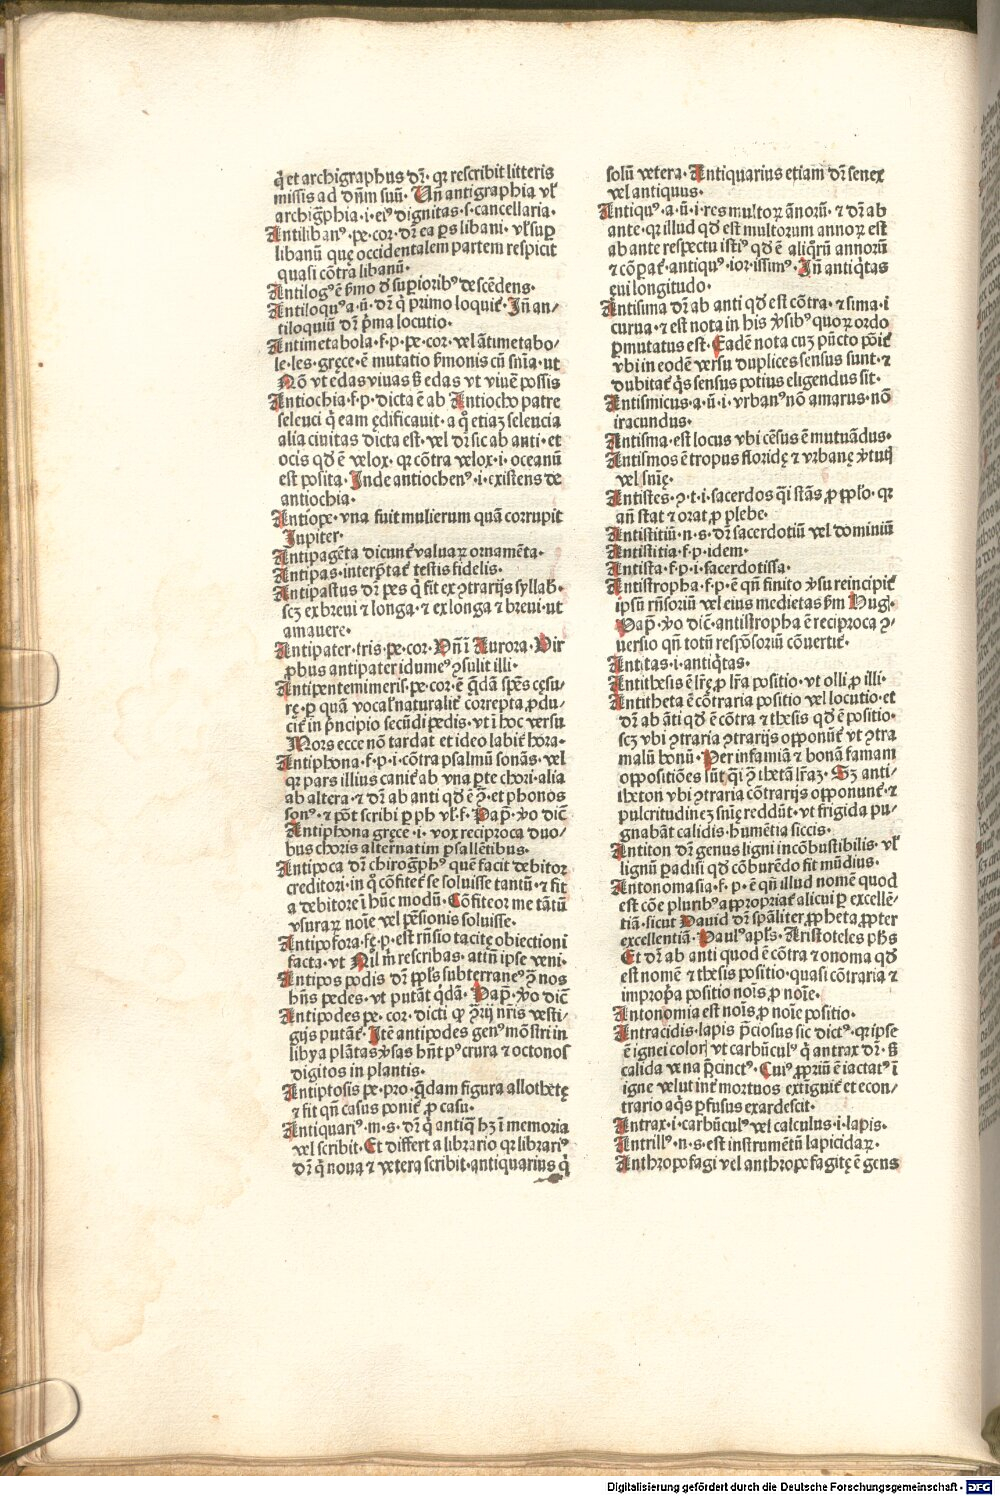 q̄ et archigraphus dr̄· qꝛ rescribit litteris
missis ad dn̄m suū· Vn̄ antigraphia vl̓
archigr̄phia·i·eiꝰ dignitas·s·cancellaria·
Antilibanꝰ·pe·cor·dr̄ ea ꝑs libani· vl̓ suꝑ
libanū quę occidentalem partem respicit
quasi cōtra libanū·
Antilogꝰ ē ẜmo ď suꝑioribꝰ descēdens·
Antiloquꝰ a·ū·dr̄ q̇ primo loquit᷑· Jn̄ an/
tiloquiū dr̄ p̄ma locutio·
Antimetabola·f·p·pe·cor·vel ātimetabo/
le·les·gręce·ē mutatio ẜmonis cū sn̄ia·ut
Nō vt edas viuas ẜ edas vt viuē possis
Antiochia·f·p·dicta ē ab Antiocho patre
seleuci q̇ eam ędificauit·a q̊ etiaꝫ seleucia
alia ciuitas dicta est·vel dr̄ sic ab anti·et
ocis qd̄ ē velox·qꝛ cōtra velox·i·oceanū
est posita·Jnde antiochenꝰ·i·existens de
antiochia·
Antiope·vna fuit mulierum quā corrupit
Jupiter·
Antipagēta dicunt᷑ valuaꝝ ornamēta·
Antipas·interp̄tat᷑ testis fidelis·
Antipastus dr̄ pes q̇ fit ex ꝯtrarijs syllab̓·
scꝫ ex breui ⁊ longa·⁊ ex longa ⁊ breui·ut
amauere·
Antipater·tris·pe·cor·Vn̄ ī Aurora·Vir
ꝓbus antipater idumeꝰ ꝯsulit illi·
Antipentemimeris·pe·cor·ē q̄dā spēs cęsu/
rę·ꝑ quā vocal̓ naturalit᷑ correpta ꝓdu/
cit᷑ in p̄ncipio secūdi pedis·vt ī hoc versu
Mors ecce nō tardat et ideo labit᷑ hora·
Antiphona·f·p·i·cōtra psalmū sonās·vel
qꝛ pars illius canit᷑ ab vna ꝑte chori·alia
ab altera·⁊ dr̄ ab anti qd̄ ē ꝯ̄·et phonos
sonꝰ·⁊ pōt scribi ꝑ ph vl̓·f·Pap̄·v̇o dic̄
Antiphona gręce·i·vox reciproca duo/
bus choris alternatim psallētibus·
Antipoca dr̄ chirogr̄phꝰ quē facit debitor
creditori·in q̊ cōfitet᷑ se soluisse tantū·⁊ fit
a debitore ī hūc modū·Cōfiteor me tātū
vsuraꝝ noīe vel pēsionis soluisse·
Antipofora·fę·p·est rn̄sio tacitę obiectioni
facta·vt Nil m̄ rescribas·attn̄ ipse veni·
Antipos podis dr̄ ppl̄s subterraneꝰ ꝯ̄ nos
hn̄s pedes·vt putāt q̇dā·Pap̄·v̇o dic̄
Antipodes pe·cor·dicti ꝙ ꝯ̄rij nr̄is vesti/
gijs putāt᷑·Jtē antipodes genꝰ mōstri in
libya plātas v̇sas hn̄t pꝰ crura ⁊ octonos
digitos in plantis·
Antiptosis pe·pro·q̄dam figura allothetę
⁊ fit qn̄ casus ponit᷑ ꝓ casu·
Antiquariꝰ·m·s·dr̄ q̇ antiq̄ hꝫ ī memoria
vel scribit·Et differt a librario qꝛ librariꝰ
dr̄ q̇ noua ⁊ vetera scribit·antiquarius q̇
solū vetera·Antiquarius etiam dr̄ senex
vel antiquus·
Antiquꝰ·a·ū·i·res multoꝝ ānorū·⁊ dr̄ ab
ante·qꝛ illud qd̄ est multorum annoꝝ est
ab ante respectu istiꝰ qd̄ ē aliq̄rū annorū
⁊ cōꝑat᷑·antiquꝰ·ior·issimꝰ·Jn̄ antiq̇tas
ęui longitudo·
Antisima dr̄ ab anti qd̄ est cōtra·⁊ sima·i
curua·⁊ est nota in his v̇sibꝰ quoꝝ ordo
ꝑmutatus est·Eadē nota cuꝫ pūcto pōit᷑
vbi in eodē versu duplices sensus sunt·⁊
dubitat᷑ q̇s sensus potius eligendus sit·
Antismicus·a·ū·i·vrbanꝰ nō amarus·nō
iracundus·
Antisma·est locus vbi cēsus ē mutuādus·
Antismos ē tropus floridę ⁊ vrbanę v̇tutꝭ
vel sn̄ię·
Antistes·ꝯ·t·i·sacerdos q̄si stās ꝓ ppl̄o·qꝛ
an̄ stat ⁊ orat ꝓ plebe·
Antistitiū·n·s·dr̄ sacerdotiū vel dominiū
Antistitia·f·p·idem·
Antista·f·p·i·sacerdotissa·
Antistropha·f·p·ē qn̄ finito v̇su reincipit᷑
ipsū rn̄soriū vel eius medietas ẜm Hug̓·
Pap̄·v̇o dic̄·antistropha ē reciproca ꝯ/
uersio qn̄ totū respōsoriū cōuertit᷑·
Antitas·i·antiq̇tas·
Antithesis ē lr̄ę ꝓ lr̄a positio·vt olli ꝓ illi·
Antitheta ē cōtraria positio vel locutio·et
dr̄ ab āti qd̄ ē cōtra ⁊ thesis qd̄ ē positio·
scꝫ vbi ꝯtraria ꝯtrarijs opponūt᷑ vt ꝯtra
malū bonū·Per infamiā ⁊ bonā famam
oppositiōes sūt q̄si ꝯ̄ thetā lr̄aꝫ·Sꝫ anti·
theton vbi ꝯtraria cōtrarijs opponunt᷑·⁊
pulcritudinē sn̄ię reddūt·vt frigida pu/
gnabāt calidis·humētia siccis·
Antiton dr̄ genus ligni incōbustibilis·vl̓
lignū ꝑadisi qd̄ cōburēdo fit mūdius·
Antonomasia·f·p·ē qn̄ illud nomē quod
est cōe pluribꝰ appropriat᷑ alicui ꝑ excellē/
tiā·sicut Dauid dr̄ spāliter ꝓpheta ꝓpter
excellentiā·Paulꝰ apl̄s·Aristoteles ph̄s
Et dr̄ ab anti quod ē cōtra ⁊ onoma qd̄
est nomē ⁊ thesis positio·quasi cōtraria ⁊
impropa positio noīs ꝓ noīe·
Antonomia est noīs ꝓ noīe positio·
Antracidis·lapis p̄ciosus sic dictꝰ·qꝛ ipse
ē ignei color vt carbūculꝰ q̇ antrax dr̄·ẜ
calida vena p̄cinctꝰ·Cuiꝰ ꝓpriū ē iactatꝰ ī
igne velut int᷑ mortuos extīguit᷑ et econ/
trario aq̇s ꝑfusus exardescit·
Antrax·i·carbūculꝰ vel calculus·i·lapis·
Antrillꝰ·n·s·est instrumētū lapicidaꝝ·
Anthropofagi vel anthropofagitę ē gens
Digitalisierung gefördert durch die Deutsche Forschungsgemeinschaft - DFG